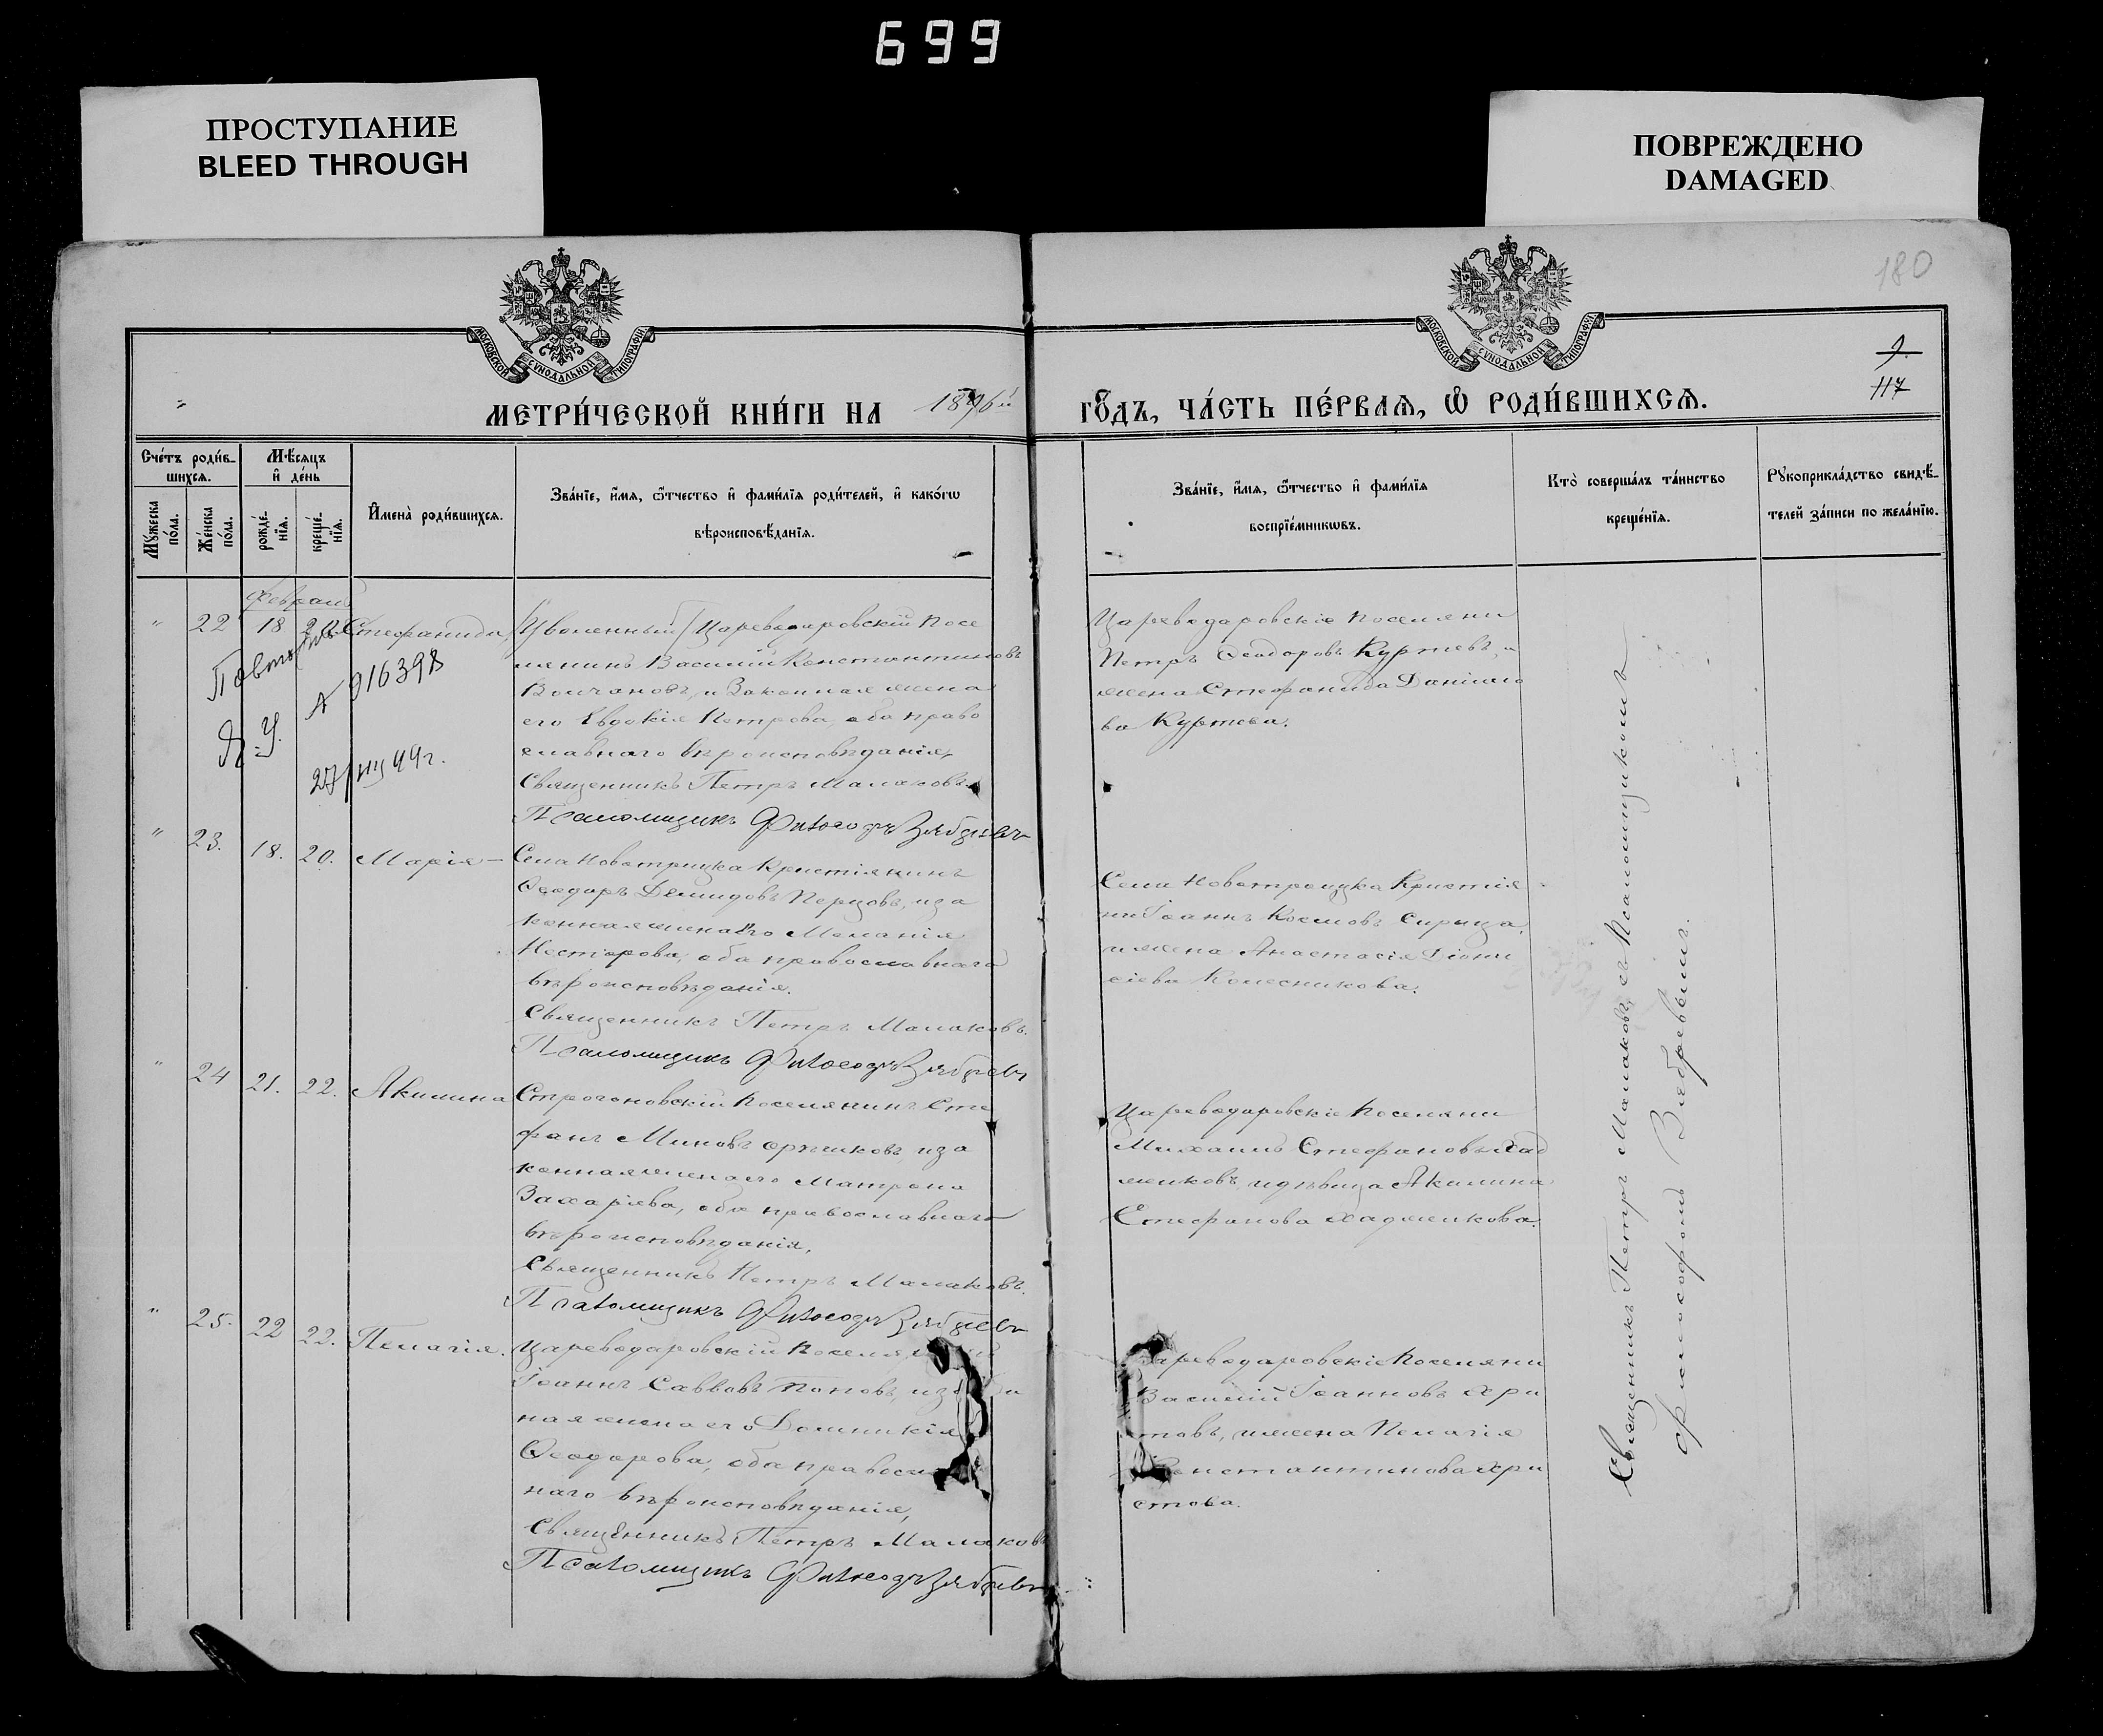 699
ПРОСТУПАНИЕ
BLEED THROUGH
ПОВРЕЖДЕНО
DAMAGED
180
МОСКОВСКОЙ СѴНОДАЛЬНОЙ ТИПОГРАФІИ
МОСКОВСКОЙ СѴНОДАЛЬНОЙ ТИПОГРАФІИ
9.
117
МЕТРИ́ЧЕСКОЙ КНИ́ГИ НА 1896й го́дъ, ЧА́СТЬ ПЕ́РВАѦ, Ѡ҆ РОДИ́ВШИХСѦ.
Сче́тъ роди́в-
шихсѧ.
Мѣ́сѧцъ
и҆ де́нь
Мꙋ́жеска по́ла.
Же́нска по́ла.
рожде́-нїѧ.
креще́-нїѧ.
И҆мена̀ роди́вшихсѧ.
Зва́нїе, и҆́мѧ, ѻ҆́тчество и҆ фами́лїѧ роди́телей, и҆ како́гѡ
вѣроисповѣ́данїѧ.
Зва́нїе, и҆́мѧ, ѻ҆́тчество и҆ фами́лїѧ
воспрїе́мникѡвъ.
Кто̀ соверша́лъ та́инство
креще́нїѧ.
Рꙋкоприкла́дство свидѣ́-
телей за́писи по жела́нїю.
Февраль
" 22 18 20 Стефанида Уволенный Царевдаровскій посе
лянинъ Василій Константиновъ
Волчановъ, и Законная жена
его Евдокія Петрова, оба право
славнаго вѣроисповѣданія,
Священникъ Петръ Малаковъ
Псаломщикъ Философъ Зябревъ
Повторное
А 916398
27/VIII 44г.
Царевдаровскіе поселяни
Петръ Ѳеодоровъ Куртевъ, и
жена Стефанида Даніило
ва Куртева.
" 23. 18. 20. Марія Села Новотроицка Крестіянинъ
Ѳеодоръ Демидовъ Перцовъ, и за
конная жена его Меланія
Несторова, оба православнаго
вѣроисповѣданія.
Священникъ Петръ Малаковъ.
Псаломщикъ Философъ Зябревъ
Села Новотроицка Крестія
ни Іоаннъ Космовъ Сирица,
и жена Анастасія Діони
сіева Колесникова.
" 24 21. 22. Акилина Строгоновскій поселянинъ Сте
фанъ Миновъ Оржиковъ, и за
конная жена его Матрона
Захаріева, оба православнаго
вѣроисповѣданія,
Священникъ Петръ Малаковъ.
Псаломщикъ Философъ Зябревъ
Царевдаровскіе поселяни
Михаилъ Стефановъ Хад
жиковъ, и дѣвица Акилина
Стефанова Хаджикова.
" 25. 22 22. Пелагія. Царевдаровскій поселянинъ
Іоаннъ Саввовъ Поповъ, и за
ная жена его Домникія
Ѳеодорова, оба правосл
наго вѣроисповѣданія,
Священникъ Петръ Малаковъ
Псаломщикъ Философъ Зябревъ
Царевдаровскіе поселяни
Василій Іоанновъ Хри
стовъ, и жена Пелагія
Константинова Хри
стова.
Священникъ Петръ Малаковъ, съ Псаломщикомъ
Философомъ Зябревымъ.